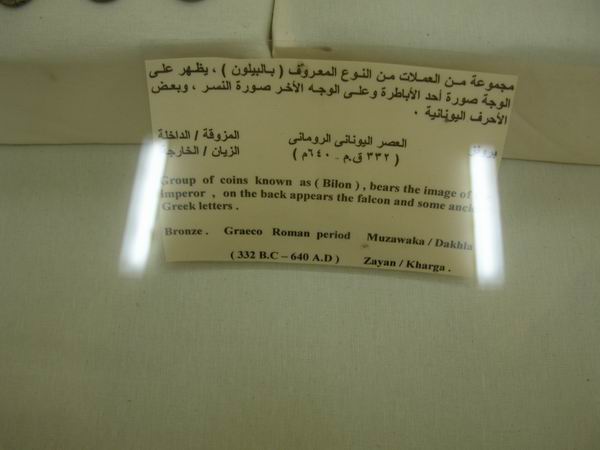 مجموعة من العملات من النوع المعروف ( بالبيلون ) ، يظهر على
الوجة صورة أحد الأباطرة وعلى الوجه الأخر صورة النسر ، وبعض
الأحرف اليونانية .
العصر اليونانى الرومانى المزوقة / الداخلة
( ٣٣٢ ق.م - ٦٤٠م ) الزيان / الخارجة
Group of coins known as ( Bilon ) , bears the image of
imperor , on the back appears the falcon and some
Greek letters .
Bronze . Graeco Roman period Muzawaka / Dakhla
( 332 B.C – 640 A.D ) Zayan / Kharga .